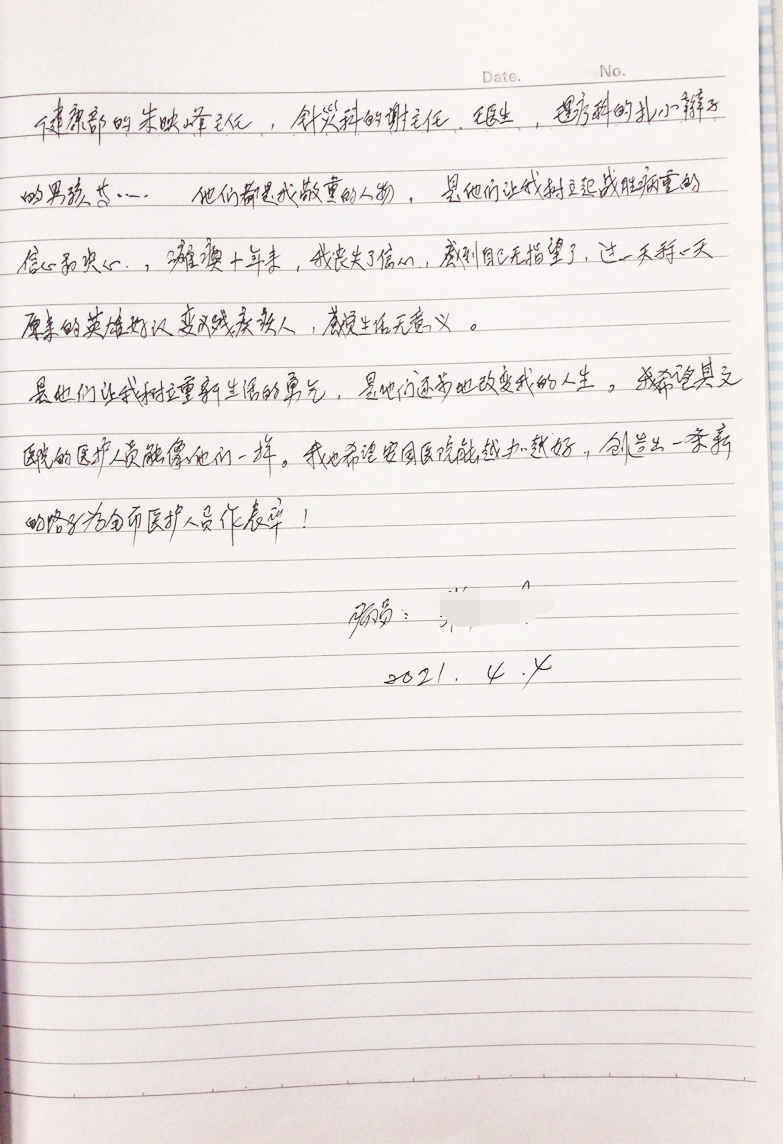 Date. No.
健康部的朱映峰主任，针灸科的谢主任、王医生，理疗科的扎小辫子
的男孩等…… 他们都是我敬重的人物，是他们让我树立起战胜病重的
信心和决心.，瘫痪十年来，我丧失了信心，感到自己无指望了，过一天算一天
原来的英雄好汉变成残疾人，感觉生活无意义。
是他们让我树立重新生活的勇气，是他们逐步地改变我的人生。我希望其它
医院的医护人员能像他们一样。我也希望安国医院能越办越好，创造出一条新
的路子为全市医护人员作表率！
病员：
2021.4.4